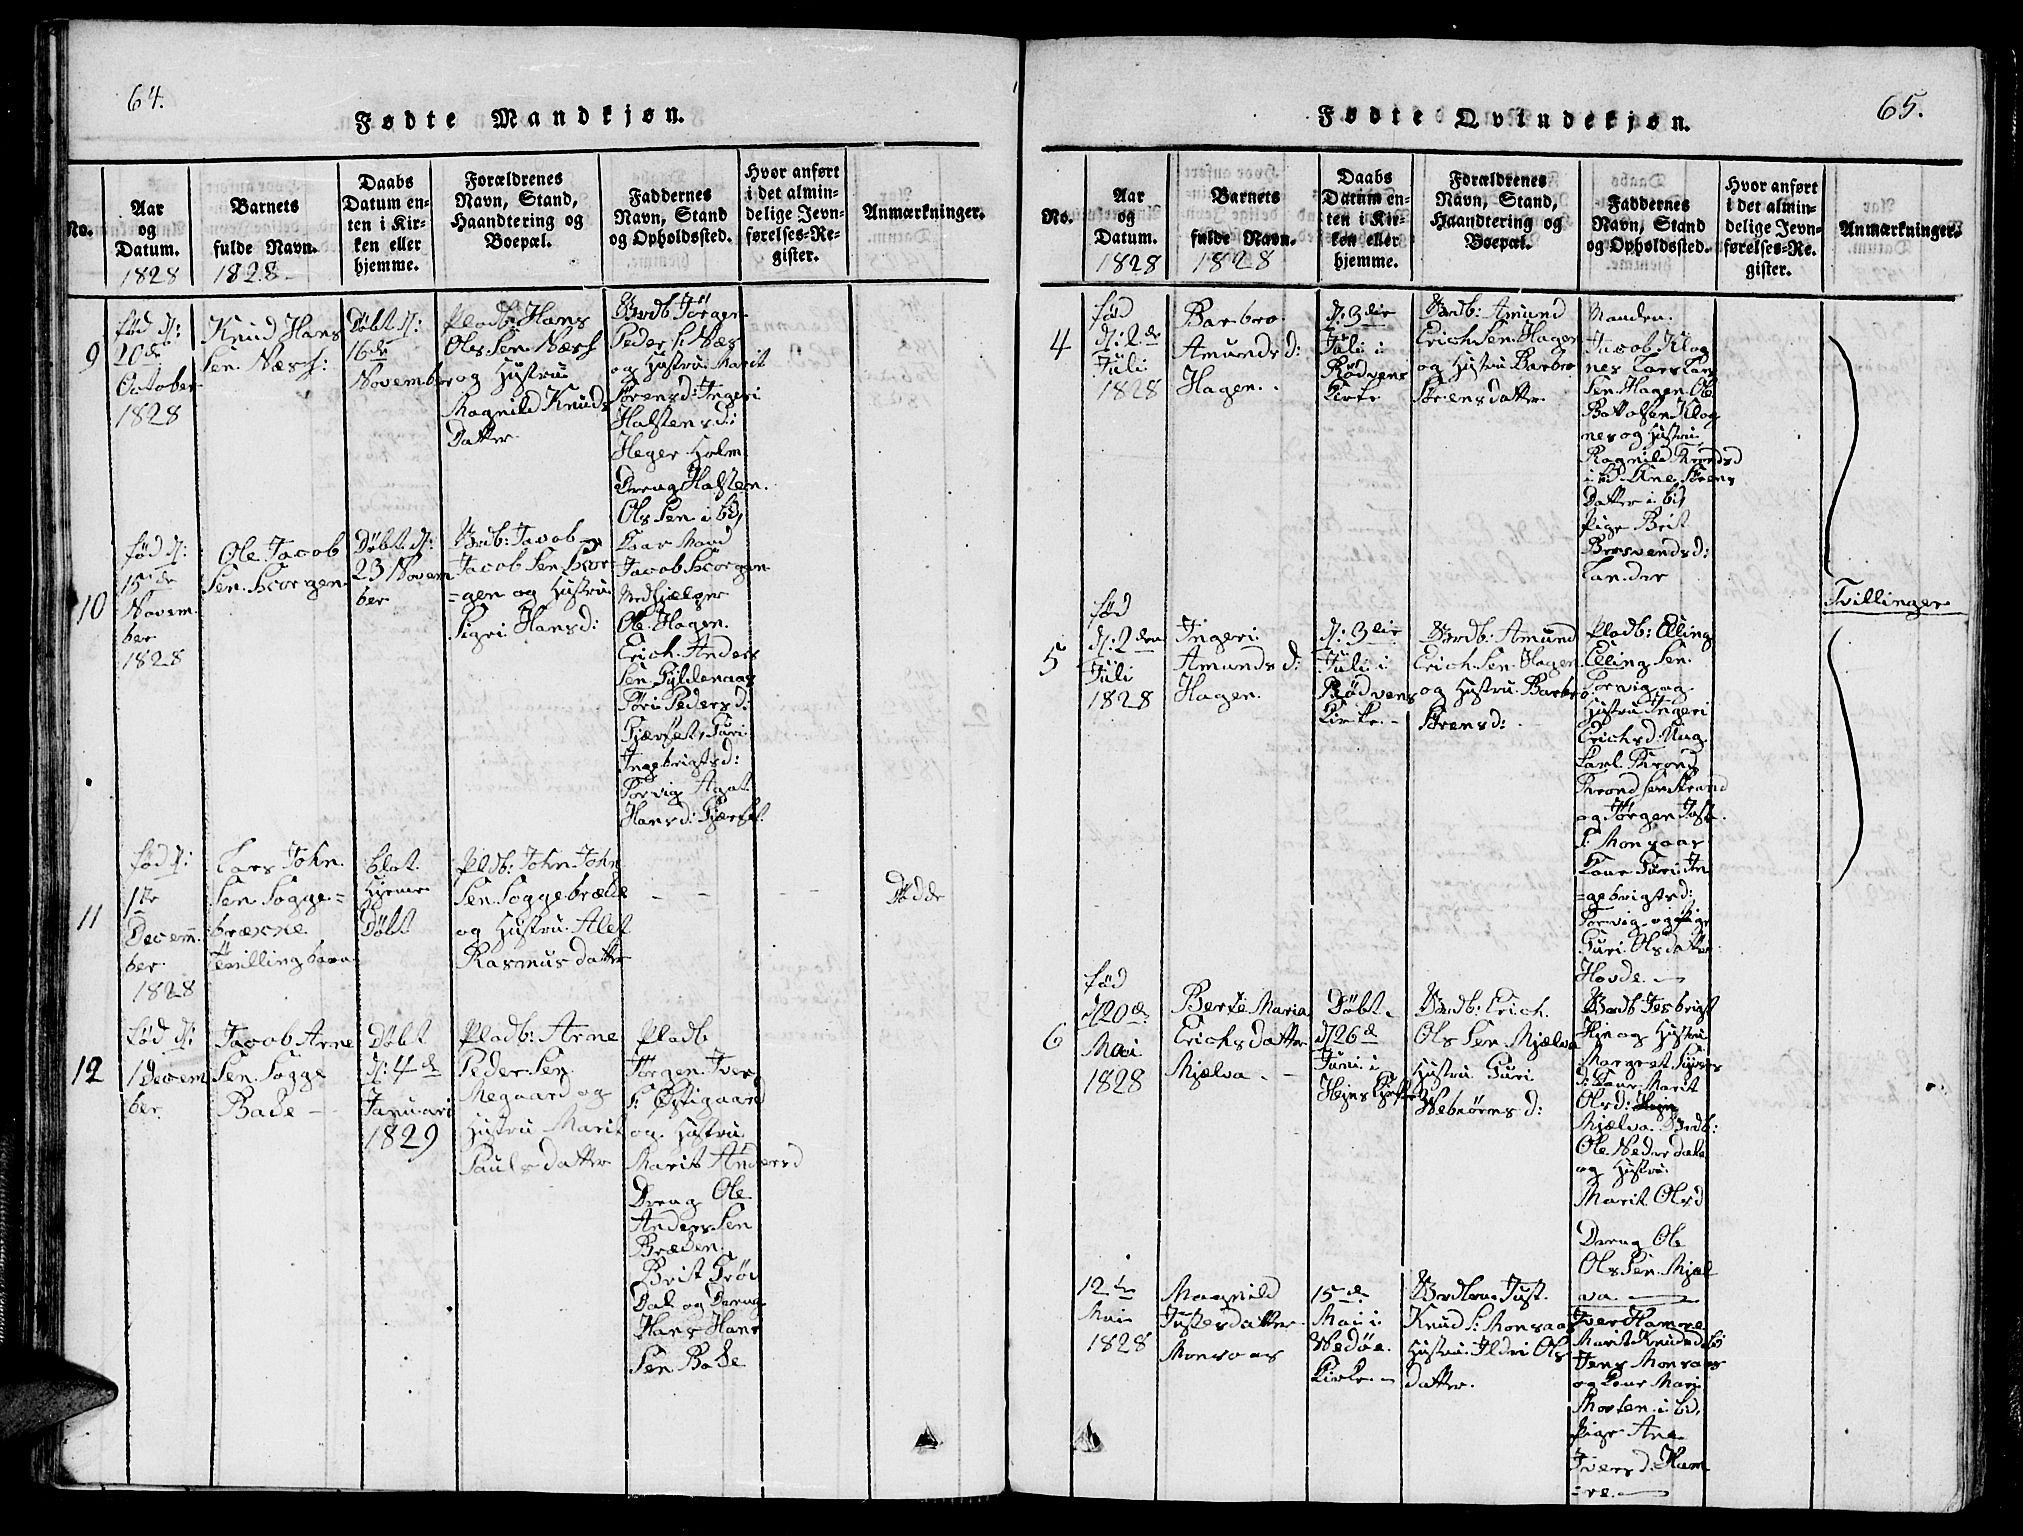 64.
Fødte Mandkjøn.
No.
Aar
og
Datum.
1828
Barnets
fulde Navn.
1828.
Daabs
Datum en-
ten i Kir-
ken eller
hjemme.
Forældrenes
Navn, Stand,
Haandtering og
Boepæl.
Faddernes
Navn, Stand
og Opholdssted.
Hvor anført
i det almin-
delige Jevn-
førelses-Re-
gister.
Anmærkninger.
9
fød d:
20de
October
1828
Knud Hans
Sen Næss:
Døbt d:
16de
November
Pladb: Hans
Ols Sen Næss
og Hustru
Magnild Knuds
Datter
Brdb Jörgen
Peder S: Næs
og Hustru Marit
Sørensd: Ingeri
Halstensd:
Heger Holm
Dreng Halsten
Ols Sen i bd,
10
fød d:
15de
Novem
ber
1828
Ole Jacob
Sen Skorgen
Døbt d:
23 Novem
ber
Brdb: Jacob
Jacob Sen Skor
=gen og Hustru
Sigri Hansd:
Kaar Mand
Jacob Skorgen
Medhjælger
Ole Hagen
Erich Anders
Sen Gyldenaas
Pedersd:
Guri
Ingebrigtsd:
Torvig Agat
Hansd:
11
fød d:
1te
Decem̄
ber
1828
Lars John
Sen Sogge=
brække
Tvilling barn
blot
Hjeme
Døbt
Pladb: John John
Sen Soggebrække
og Hustru Alet
Rasmus datter
— —
— —
Dødde
12
fød d:
1 Decem
ber
Jacob Arne
Sen Sogge
Bade —
Døbt
d: 4de
Januari
1829
Pladb: Arne
Peder Sen
Megaard og
Hustru Marit
Paulsdatter
Pladb
Jörgen Iver
S: Østigaard
og Hustru
Marit Andersd
Dreng Ole
Anders Sen
Bræden
Brit Grøv
Dal og Dreng
Hans Hans
Sen Bade
65.
Fødte Qvindekjøn.
No.
Aar
og
Datum.
1828
Barnets
fulde Navn.
1828
Daabs
Datum en-
ten i Kir-
ken eller
hjemme.
Forældrenes
Navn, Stand,
Haandtering og
Boepæl.
Faddernes
Navn, Stand
og Opholdssted.
Hvor anført
i det almin-
delige Jevn-
førelses-Re-
gister.
Anmærkninger.
4
fød
d: 2de
Juli
1828
Barbro
Amundsd:
Hagen.
d: 3die
Juli i
Rødvens
Kirke
Brdb: Amund
Erich Sen Hagen
og Hustru Barbro
Sørensdatter
Manden
Jacob Klog
nes Lars Lars
Sen Hagen Ole
Botolfsen Klog
nes og Hustru
Ragnild Trondsd
i bd. Ane Sørens
Datter i bd,
Pige Brit
Beresvendsd:
Tvillinger
5
fød
d: 2den
Juli
1828
Ingeri
Amundsd:
Hagen
d: 3die
Juli i
Rødvens
Kirke —
Brdb: Amund
Erich Sen Hagen
og Hustru Barbro
Sørensd:
Pladb: Elling
Elling Sen
Torvig og
Hustru Ingeri
Erichsd: Ung
karl Trond
Trond Sen Strand
og Jörgen Just
S: Monsaas
Kone Guri In
=gebrigtsd:
Torvig og Pige
Guri Olsdatter
Hovde —
6
fød
d 20de
Mai
1828
Berte Maria
Erichsdatter
Mjelva —
Døbt
d 26de
Juni i
Hejns Kirke
Brdb: Erich
Ols Sen Mjelva
Hustru Guri
Webiørnsd:
Brdb Jesbrigt
Hejn og Hustru
Margret Sjvers
d: Kone Marit
Olsd:
Mjelva Brdb:
Ole Neder Dale
og Hustru
Marit Olsd
Dreng Ole
Ols Sen Mjel
va. —
12te
Mai
1828
Magnild
Justesdatter
Monsaas
15de
Mai i
Wedøe
Kirke —
Brdbrn Just
Knud S: Monsaas
Hustru Ildri Ols
datter.
Iver Hamre
Marit Knudsd bd
Jens Monsaas
og Kone Mari
Morten i bd,
Pige Ane
Iversd: Ham
=re. —